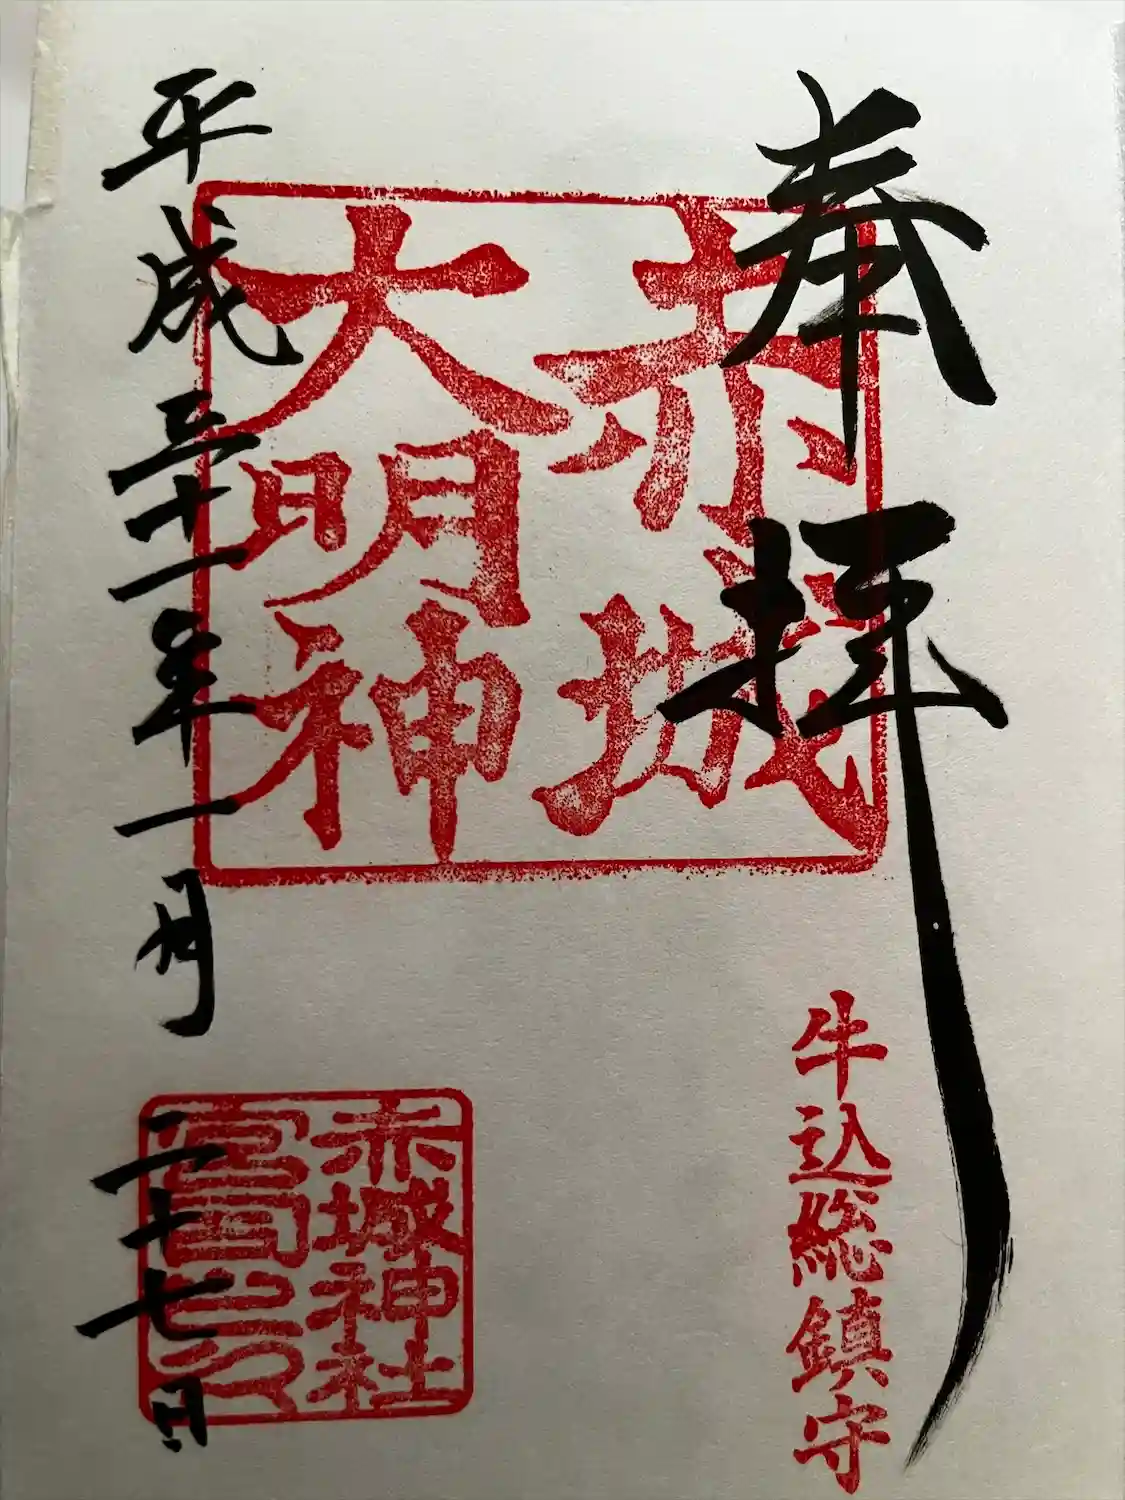 奉拝
牛込総鎮守
赤城
大明神
平成三十一年一月二十七日
赤城神社
宮司之印